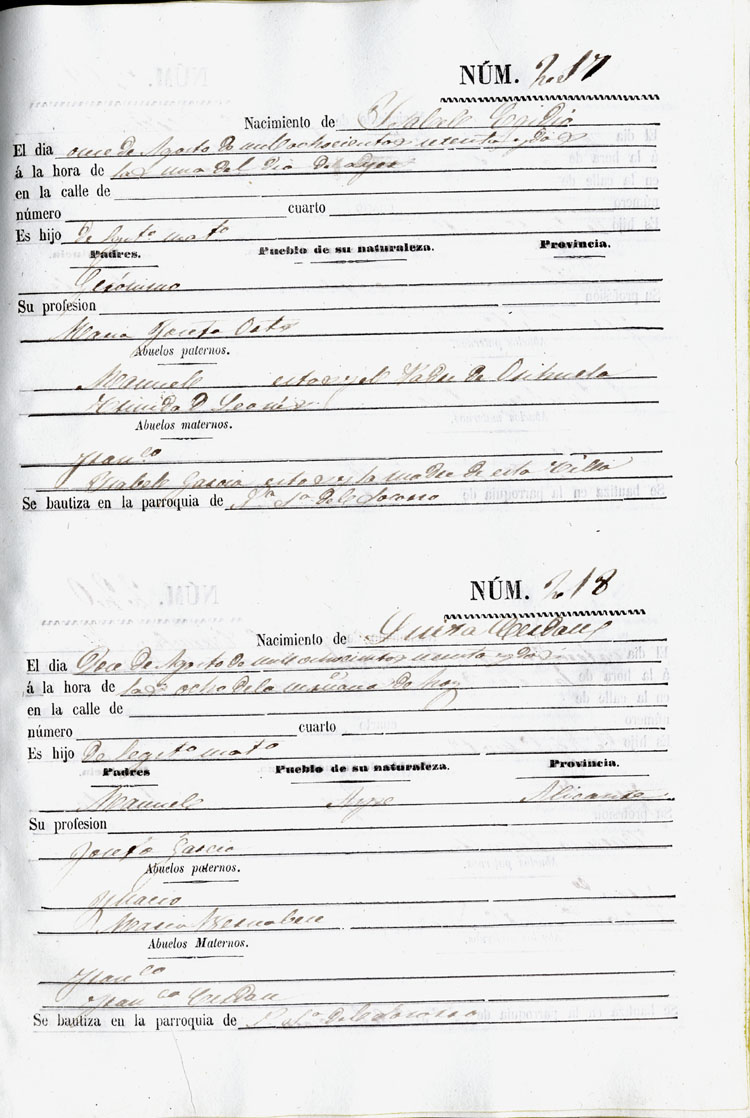 NÚM. 217
Nacimiento de Isabel
El dia once de Agosto de mil ochocientos y dos
á la hora de la una del dia de ayer
en la calle de
número cuarto
Es hijo de legitº matº
Padres. Pueblo de su naturaleza. Provincia.
Gerónimo
Su profesion
Maria Josefa
Abuelos paternos.
Manuel estos y el Padre de Orihuela
Trinidad
Abuelos maternos.
Franco
Isabel Garcia estos y la madre de esta Villa
Se bautiza en la parroquia de Nª Sª del Socorro
NÚM. 218
Nacimiento de Luisa
El dia Doce de Agosto de mil ochocientos y dos
á la hora de las ocho de la mañana de hoy
en la calle de
número cuarto
Es hijo de legitº matº
Padres Pueblo de su naturaleza. Provincia.
Manuel Aspe Alicante
Su profesion
Josefa Garcia
Abuelos paternos.
Ygnacio
Maria Bernabeu
Abuelos Maternos.
Franco
Franca
Se bautiza en la parroquia de N. Sª del Socorro